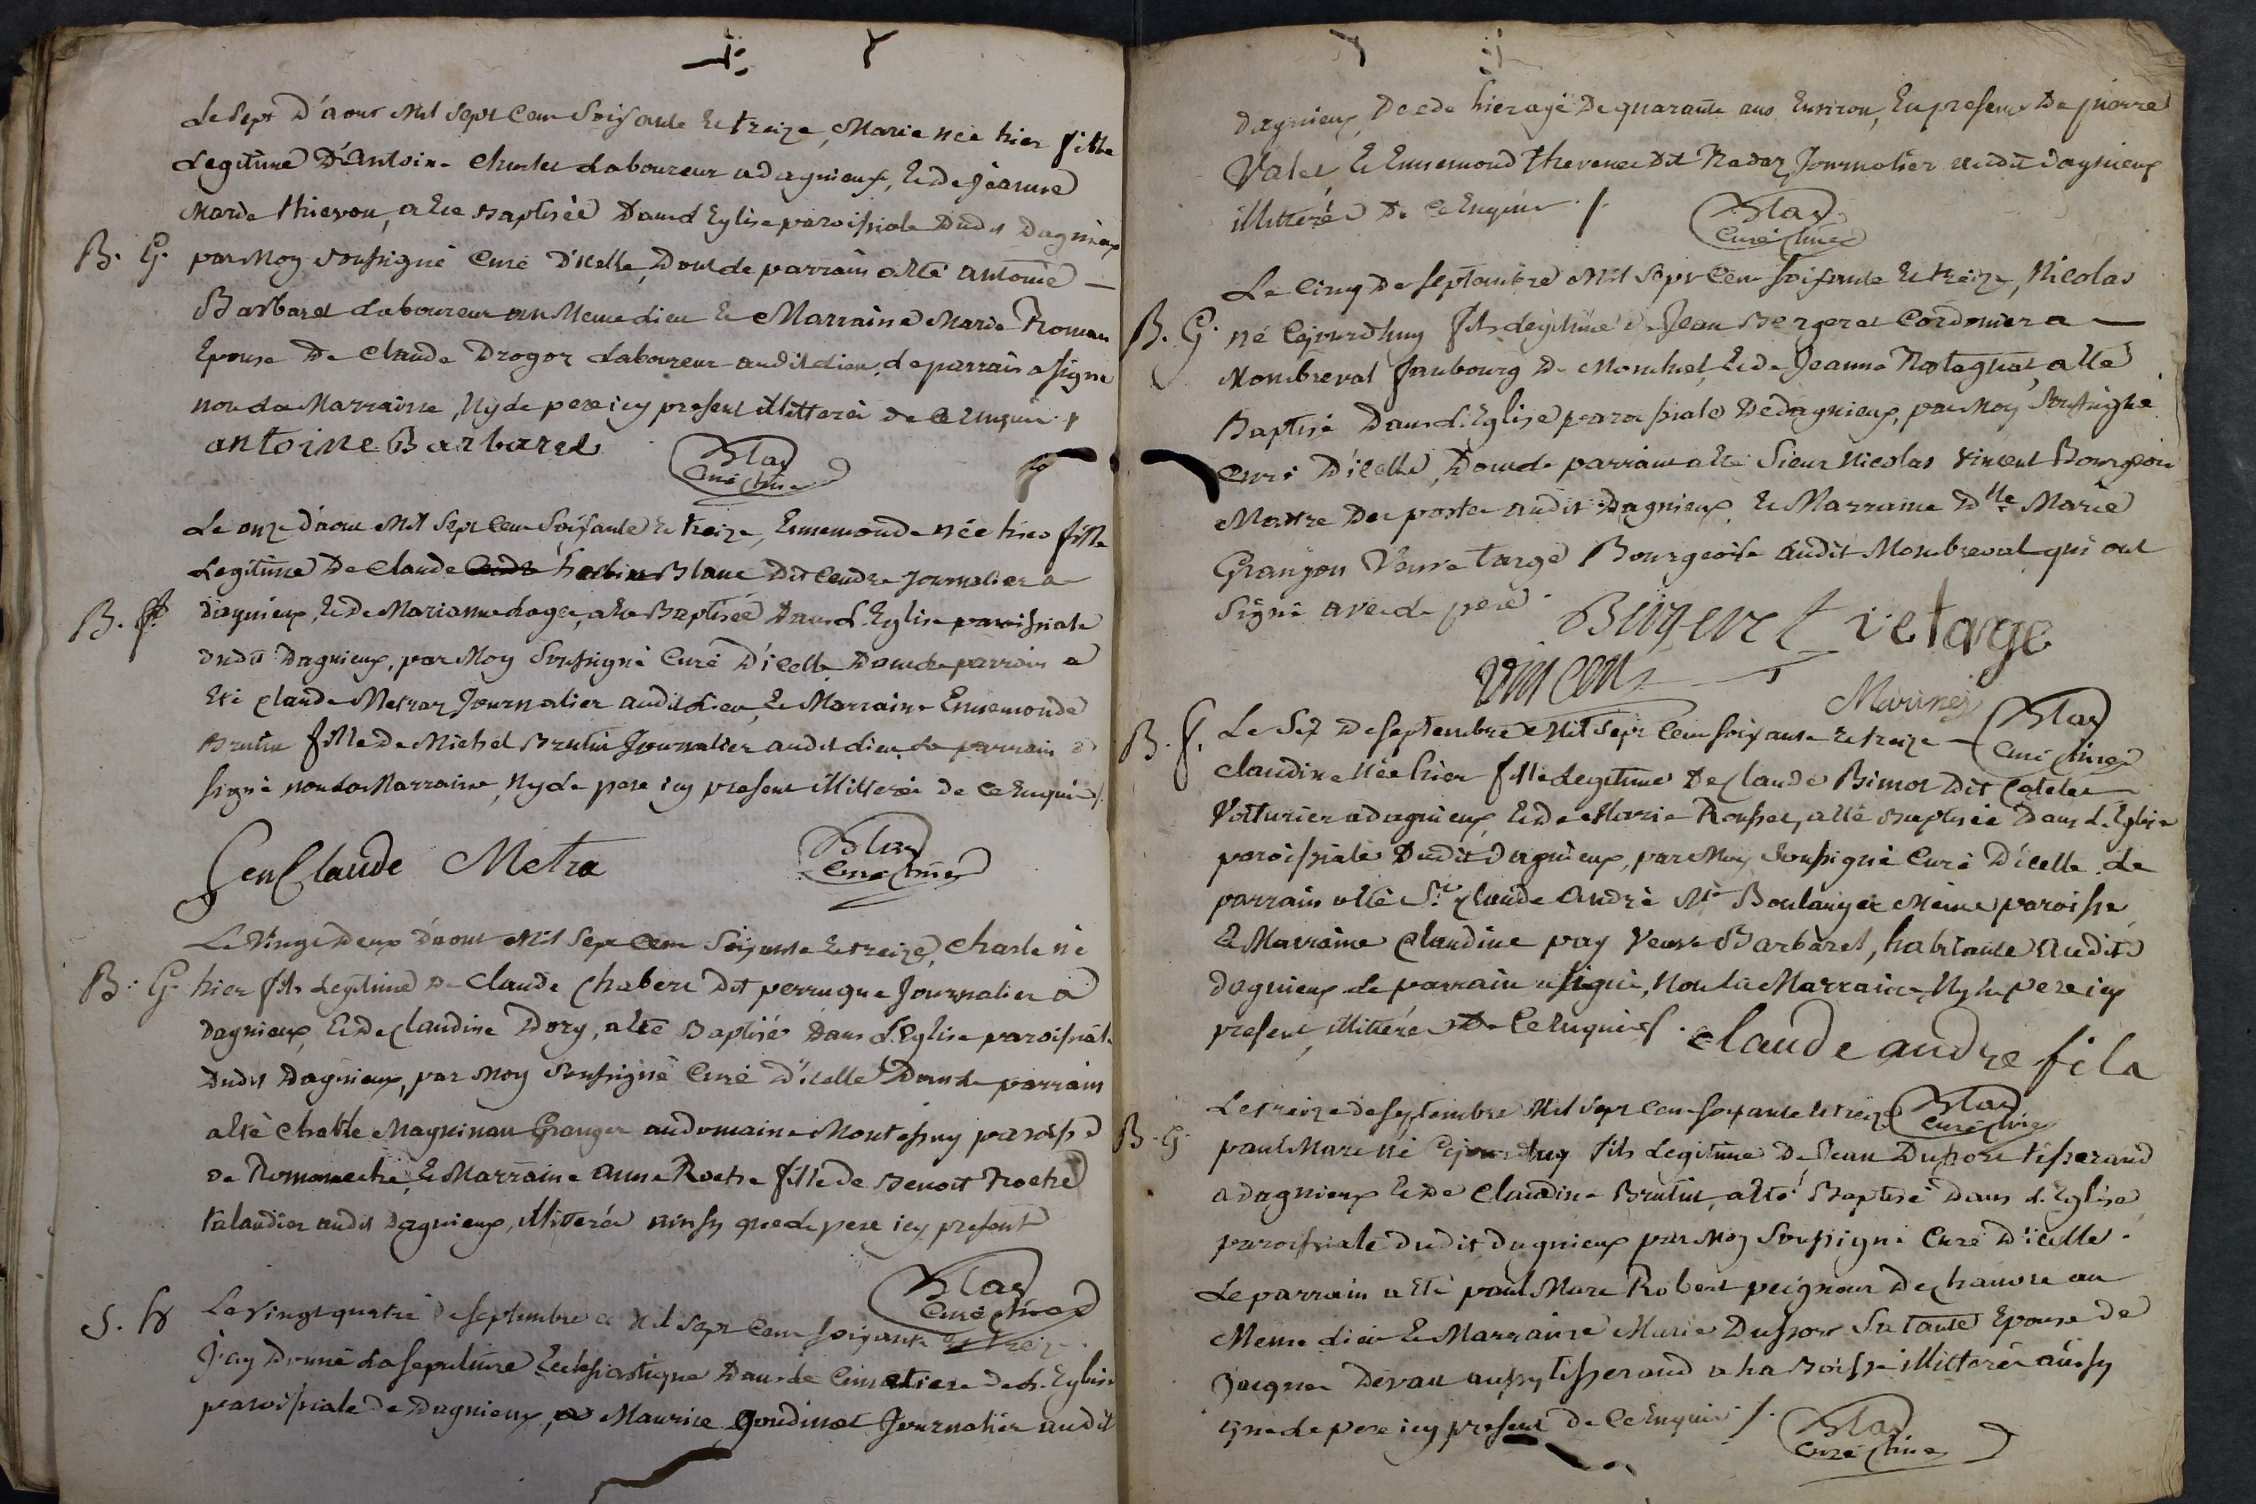 Le Sept D'aout Mil Sept Cent Soixante Et treize, Marie née hier fille
Legitime D'Antoine Laboureur a dagnieux, Et de jeanne
Marie thievon, a Eté Baptisée Dans L'Eglise paroissiale Dudit Dagnieux
B. G. par Moy Soussigné Curé D'icelle, Dont Le parrain a Eté antoine —
Barbaret Laboureur au Meme Lieu Et Marraine Marie Roman
Epouse De Claude Drogoz Laboureur audit Lieu, Le parrain a Signé
non La Marraine, Ny Le pere icy present illitterés de ce Enquis
antoine Barbaret
Blas
Curé
Le onze d'aout Mil Sept Cent Soixante Et treize, Ennemonde née hier fille
Legitime De Claude Blanc Dit Cendre Journalier a
B. f. Dagnieux, Et De Marianne Loger, a Eté Baptisée Dans L'Eglise paroissiale
Dudit Dagnieux, par Moy Soussigné Curé D'icelle Dont Le parrain a
Eté Claude Metraz Journalier audit Lieu, Et Marraine Ennemonde
Brutin fille De Michel Brutin Journalier audit Lieu Le parrain a
signé non La Marraine, Ny Le pere icy present illitterés de Ce Enquis
Jen Claude Metra
Blas
Curé
Le Vingt Deux D'aout Mil Sept Cent Soixante Et treize, Charle né
B. G. hier fils Legitime De Claude Chabert Dit perruque Journalier a
Dagnieux, Et De Claudine Dory, a Eté Baptisé Dans L'Eglise paroissiale
Dudit Dagnieux, par Moy Soussigné Curé D'icelle Dont Le parrain
a Eté Charle Magninan Granger au domaine paroisse
de Romaneche, Et Marraine Anne Roche fille De Benoit Roche
taLandier audit Dagnieux, illitterés ainsy que Le pere icy present
Blas
Curé
S. h Le Vingt quatre De Septembre Mil Sept Cent Soixante Et treize
J'ay Donné La Sepulture Ecclesiastique Dans Le Cimetiere De L'Eglise
paroissiale De Dagnieux, a Maurice Goudinet Journalier audit
Dagnieux, Decedé hier agé De quarante ans Environ, En presence De pierre
Valet, Et Ennemond thevenet Dit Nadaz Journalier audit dagnieux
illitterés De Ce Enquis /.
Blas
Curé
Le Cinq De Septembre Mil Sept Cent Soixante Et treize, Nicolas
B. G. né Cejourdhuy fils Legitime De Jean Bergeret Cordonier a —
Mombreval faubourg De Montluel, Et De Jeanne a Eté
Baptisé Dans L'Eglise paroissiale De dagnieux, par Moy Soussigné
Curé D'icelle, Dont Le parrain a Eté Sieur Nicolas Vincent Bourgeois
Maitre Des postes audit Dagnieux, Et Marraine Dlle Marie
Granjon Veuve targe Bourgeoise audit Mombreval qui ont
Signé avec Le pere.
ve targe
Vincent
Blas
Curé
B. f. Le Six De Septembre Mil Sept Cent Soixante Et treize —
Claudine Née hier fille Legitime De Claude Bimot Dit Catelet
Voiturier a dagnieux, Et De Marie Rousset, a Eté Baptisée Dans L'Eglise
paroissiale Dudit Dagnieux, par Moy Soussigné Curé D'icelle. Le
parrain a Eté Sr. Claude André Me Boulanger Même paroisse
Et Marraine Claudine pay Veuve Barbaret, habitante audit
Dagnieux Le parrain a signé, Non La Marraine, Ny Le pere icy
present, illitterés De Ce Enquis /.
Claude andre fils
Blas
Curé
Le treize de Septembre Mil Sept Cent Soixante Et treize
B. G. paul Marc né Cejourdhuy fils Legitime De Jean Dupore tisserand
a dagnieux Et De Claudine Brutin, a Eté Baptisé Dans L'Eglise
paroissiale dudit dagnieux par Moy Soussigné Curé D'icelle.
Le parrain a Eté paul Marc Robert peigneur De chanvre au
Meme Lieu Et Marraine Marie Dupore Sa tante Epouse de
Jacques Devau aussy tisserand a La Boisse illitterés ainsy
que Le pere icy present De Ce Enquis /.
Blas
Curé